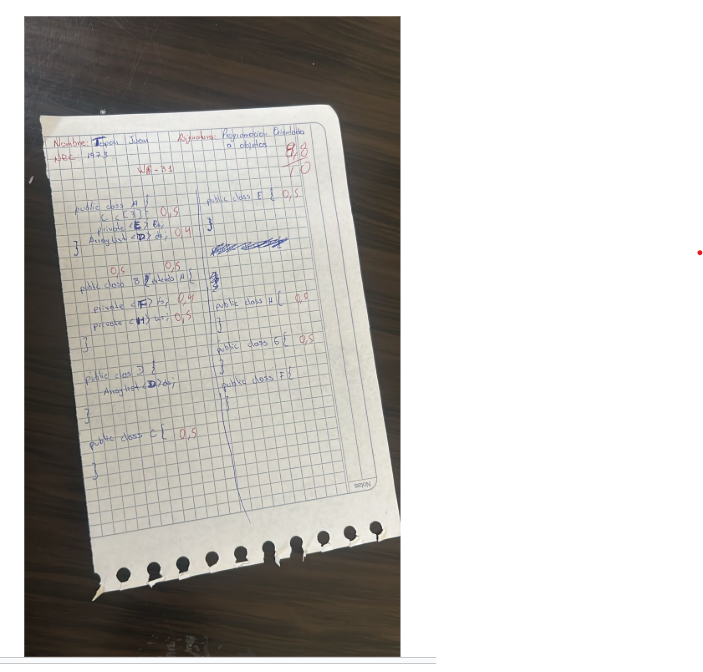 Nombre: Juan Asignatura: Programación Orientada
a objetos
NRC 1973
9,8
10
public class A {
C c [3]; 0,5
private <E> Es;
ArrayList <D> ds; 0,4
}
0,5 0,5
public class B extends A {
private <F> fs; 0,4
private <H> 0,5
}
public class D {
ArrayList <D> ds;
}
public class C { 0,5
}
public class E { 0,5
}
public class H { 0,5
}
public class G { 0,5
}
public class F {
}